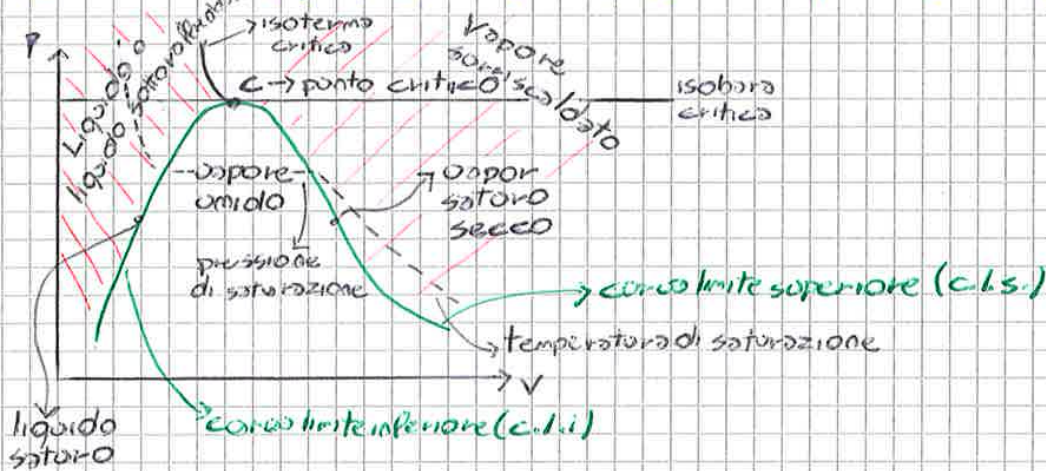 P
Liquido o
liquido sottoraffreddato
isoterma
critica
C → punto critico
Vapore
surriscaldato
isobara
critica
vapore
umido
vapor
saturo
secco
pressione
di saturazione
curva limite superiore (c.l.s.)
temperatura di saturazione
V
liquido
saturo
curva limite inferiore (c.l.i)